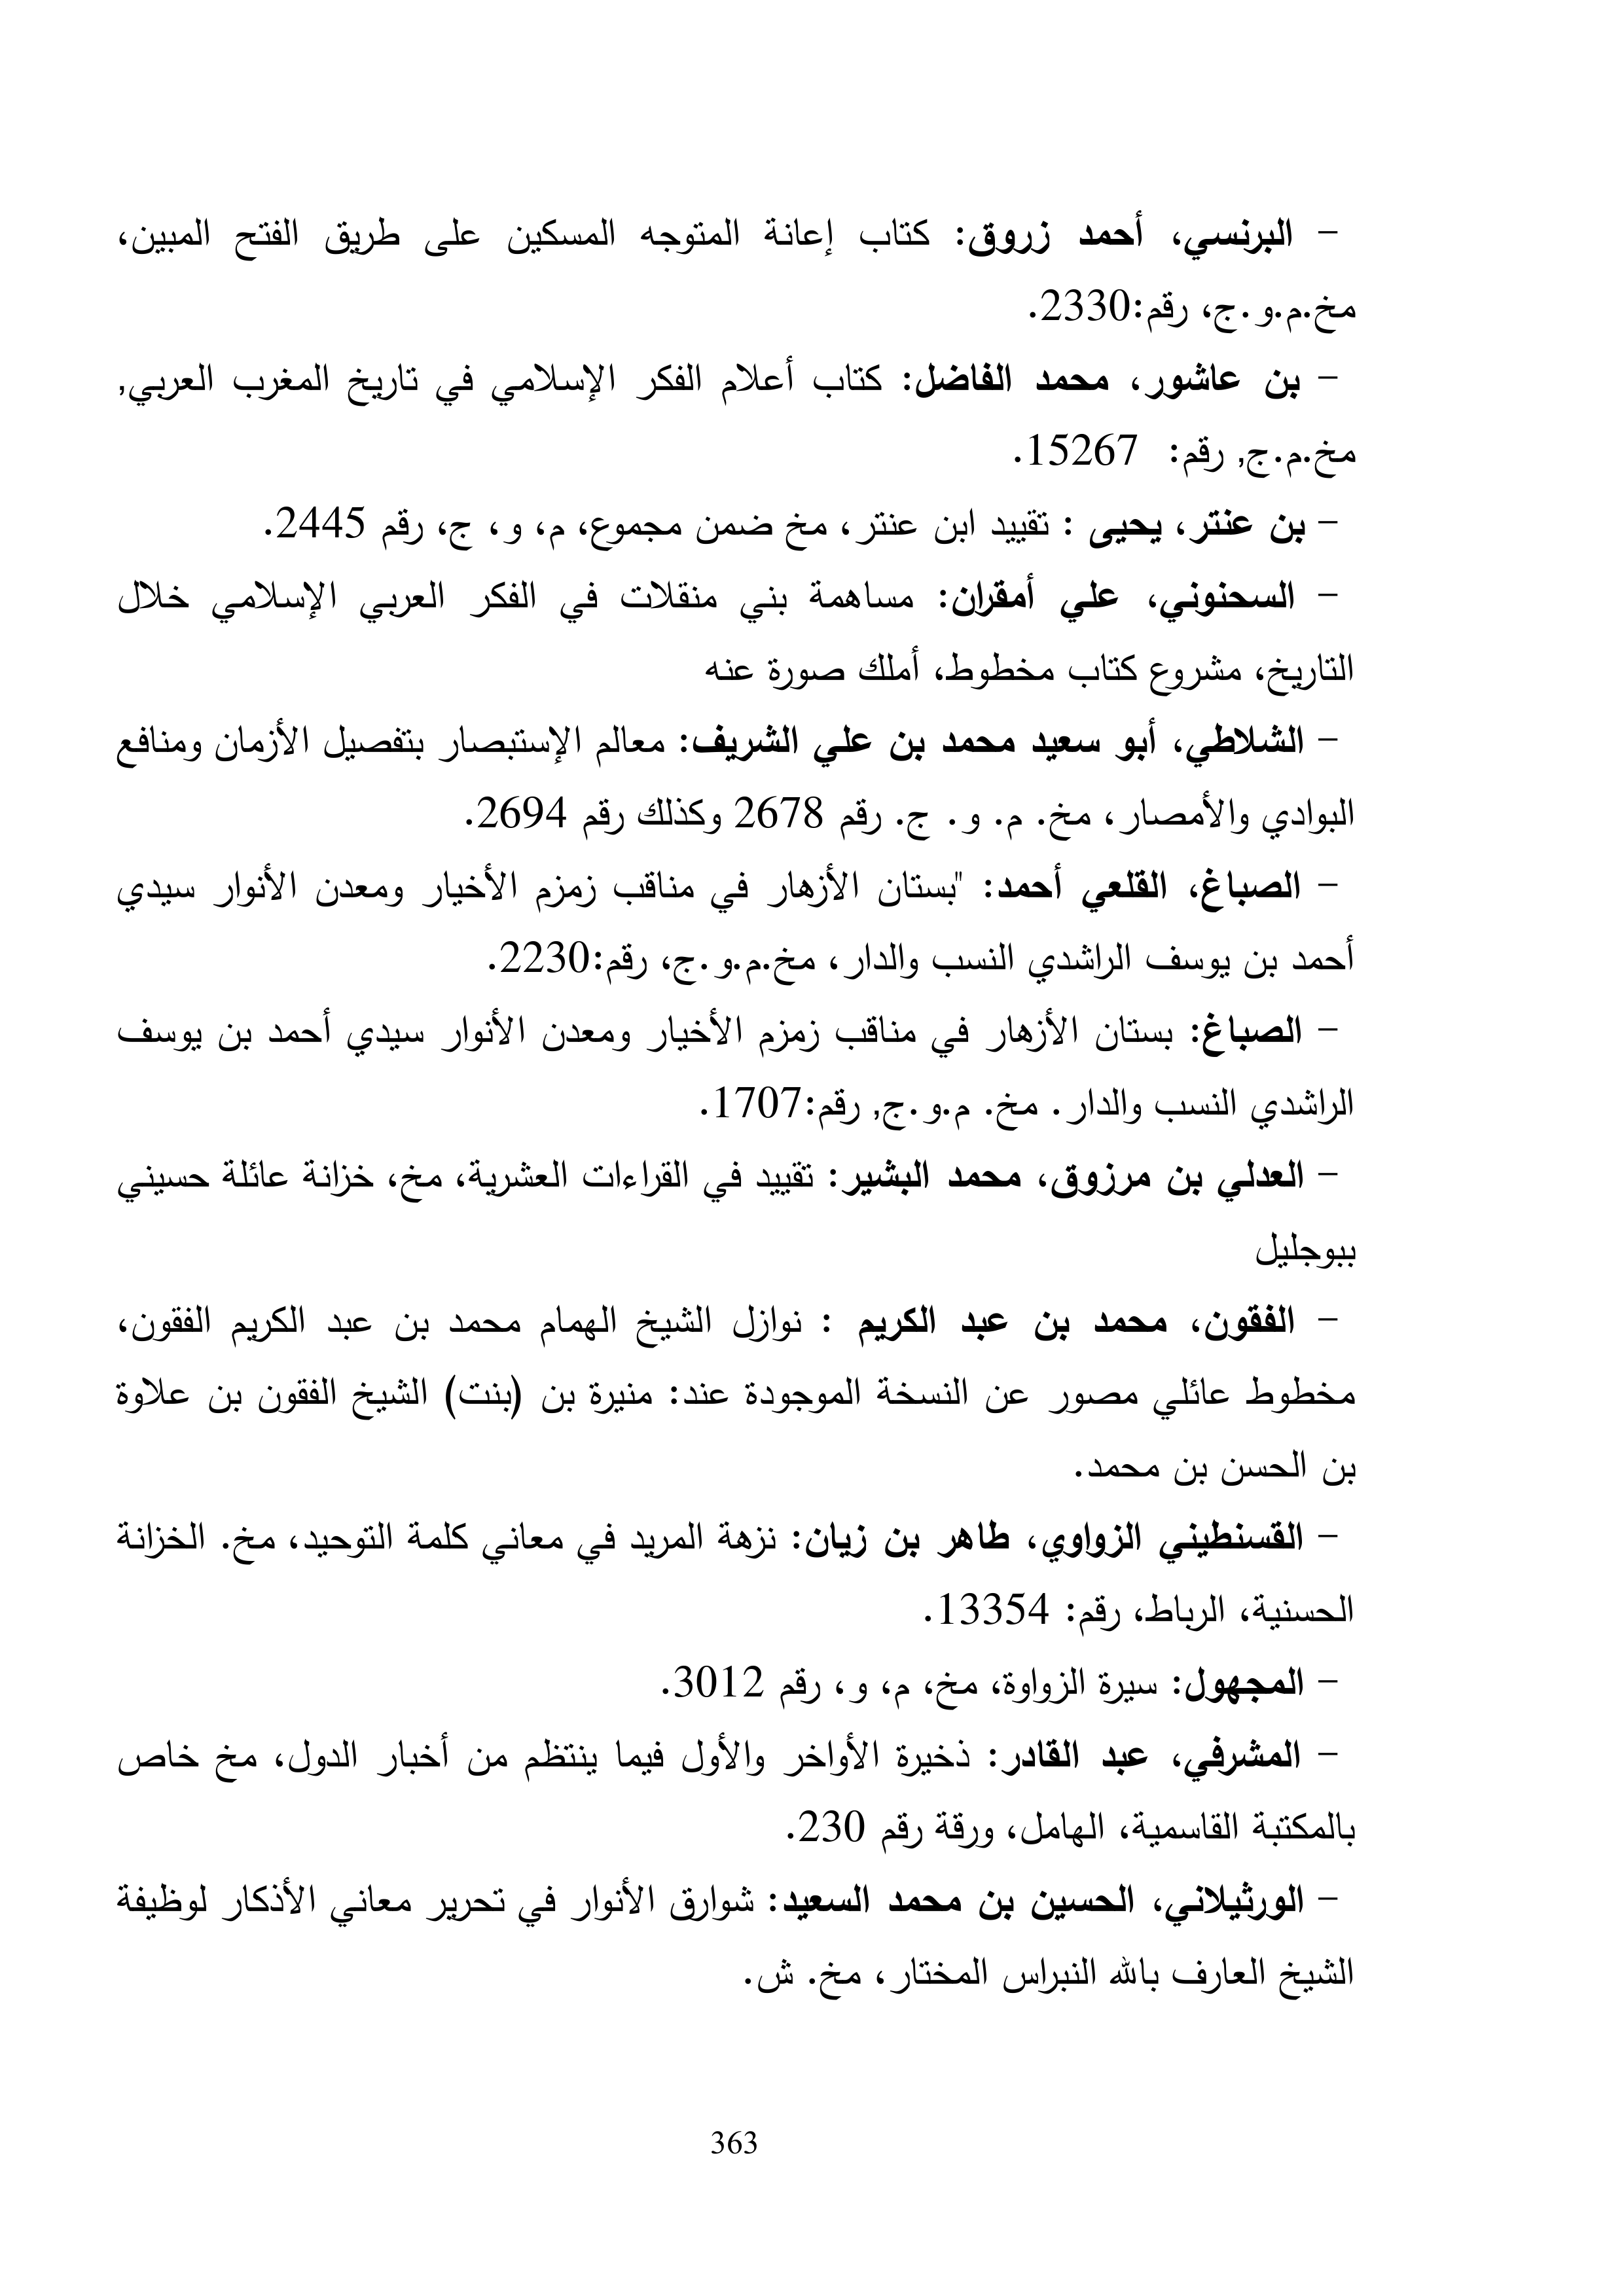 - البرنسي، أحمد زروق: كتاب إعانة المتوجه المسكين على طريق الفتح المبين،
مخ.م.و.ج، رقم:2330.
- بن عاشور، محمد الفاضل: كتاب أعلام الفكر الإسلامي في تاريخ المغرب العربي,
مخ.م.ج, رقم: 15267.
- بن عنتر، يحيى : تقييد ابن عنتر، مخ ضمن مجموع، م، و، ج، رقم 2445.
- السحنوني، علي أمقران: مساهمة بني منقلات في الفكر العربي الإسلامي خلال
التاريخ، مشروع كتاب مخطوط، أملك صورة عنه
- الشلاطي، أبو سعيد محمد بن علي الشريف: معالم الإستبصار بتفصيل الأزمان ومنافع
البوادي والأمصار، مخ. م. و. ج. رقم 2678 وكذلك رقم 2694.
- الصباغ، القلعي أحمد: "بستان الأزهار في مناقب زمزم الأخيار ومعدن الأنوار سيدي
أحمد بن يوسف الراشدي النسب والدار، مخ.م.و.ج، رقم:2230.
- الصباغ: بستان الأزهار في مناقب زمزم الأخيار ومعدن الأنوار سيدي أحمد بن يوسف
الراشدي النسب والدار. مخ. م.و.ج, رقم:1707.
- العدلي بن مرزوق، محمد البشير: تقييد في القراءات العشرية، مخ، خزانة عائلة حسيني
ببوجليل
- الفقون، محمد بن عبد الكريم : نوازل الشيخ الهمام محمد بن عبد الكريم الفقون،
مخطوط عائلي مصور عن النسخة الموجودة عند: منيرة بن (بنت) الشيخ الفقون بن علاوة
بن الحسن بن محمد.
- القسنطيني الزواوي، طاهر بن زيان: نزهة المريد في معاني كلمة التوحيد، مخ. الخزانة
الحسنية، الرباط، رقم: 13354.
- المجهول: سيرة الزواوة، مخ، م، و، رقم 3012.
- المشرفي، عبد القادر: ذخيرة الأواخر والأول فيما ينتظم من أخبار الدول، مخ خاص
بالمكتبة القاسمية، الهامل، ورقة رقم 230.
- الورثيلاني، الحسين بن محمد السعيد: شوارق الأنوار في تحرير معاني الأذكار لوظيفة
الشيخ العارف بالله النبراس المختار، مخ. ش.
363